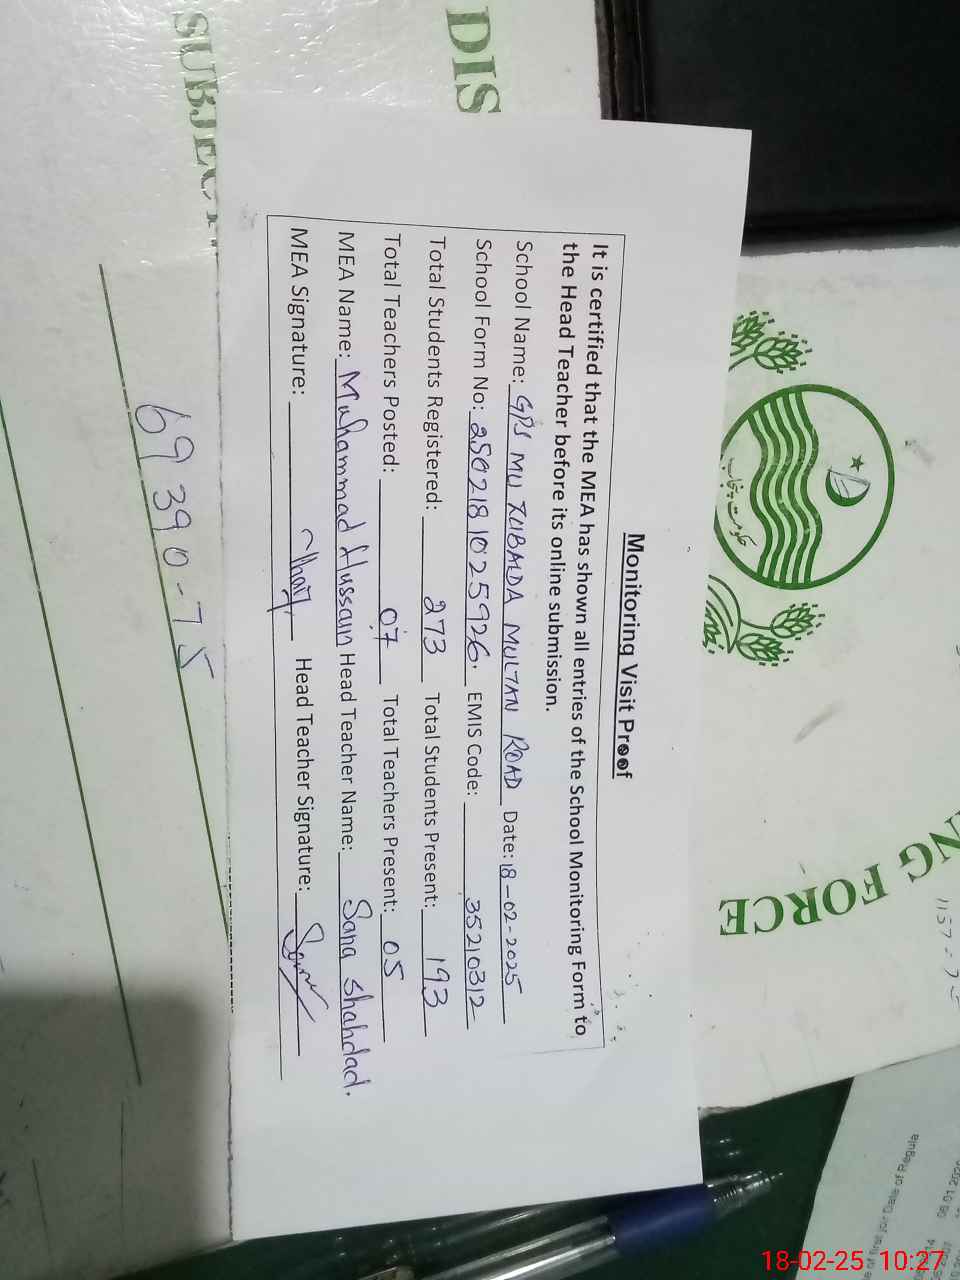 Monitoring Visit Proof
It is certified that the MEA has shown all entries of the School Monitoring Form to
the Head Teacher before its online submission.
School Name: GPS MU ZUBAIDA MULTAN ROAD Date: 18-02-2025
School Form No: 2502181025926. EMIS Code: 35210312
Total Students Registered: 273 Total Students Present: 193
Total Teachers Posted: 07 Total Teachers Present: 05
MEA Name: Muhammad Hussain Head Teacher Name: Sana Shahdad.
MEA Signature: Head Teacher Signature:
DIS
SUBJECT
69390-75
حکومت پنجاب
NG FORCE
1157-75
18-02-25 10:27